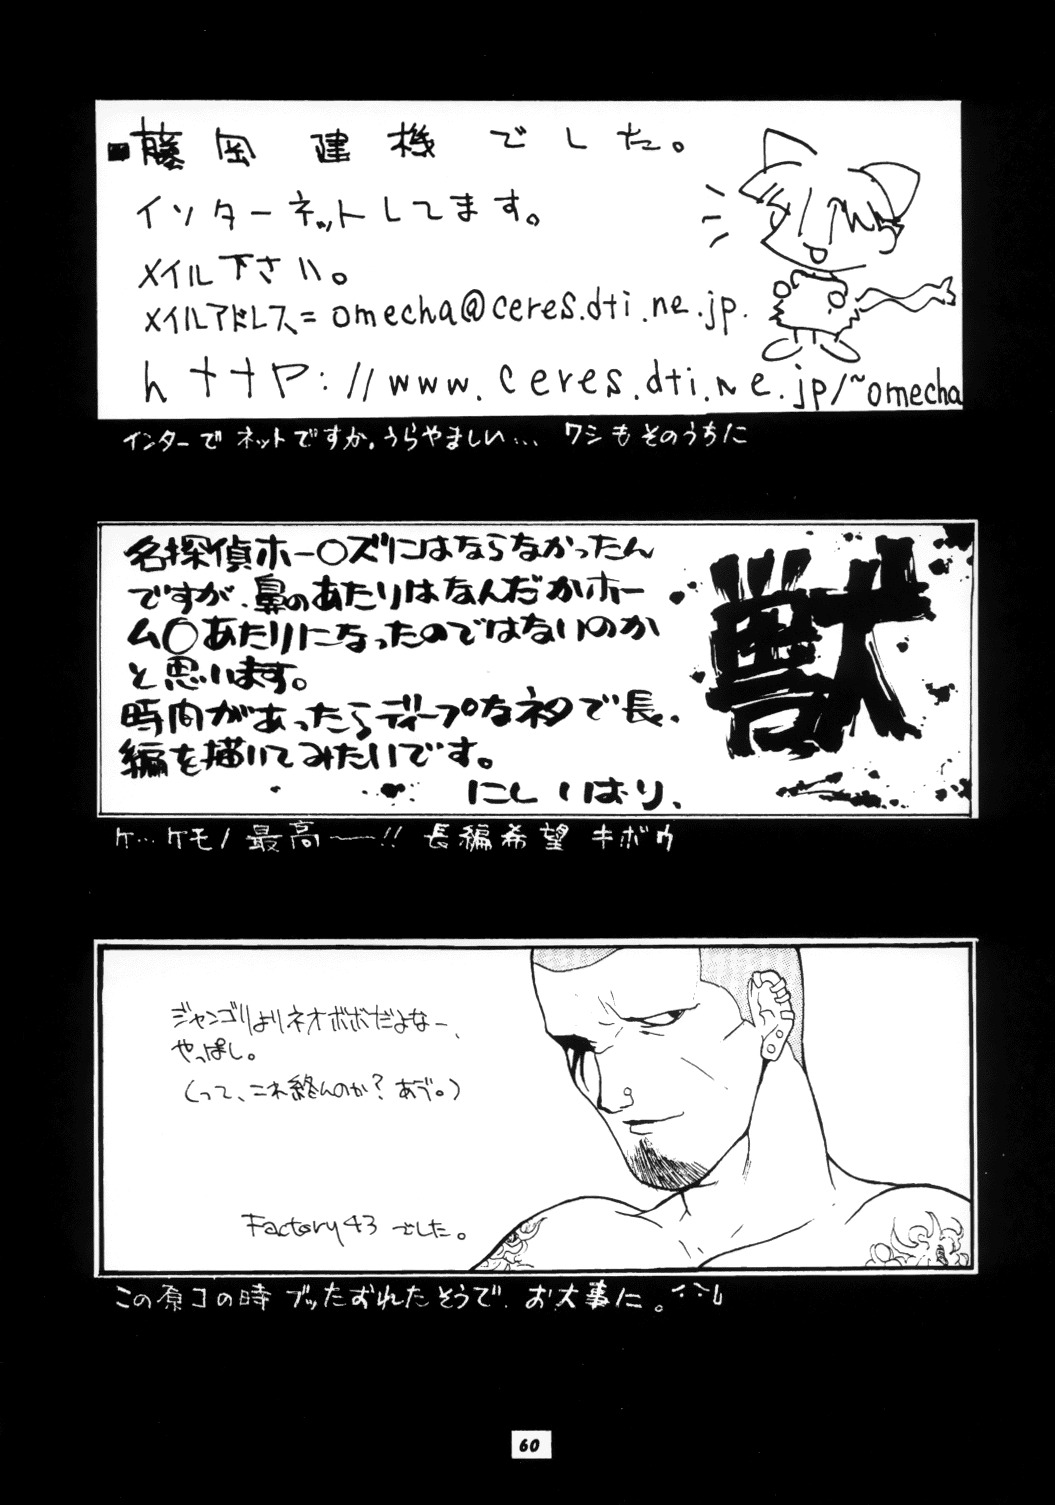 藤岡建機でした。
インターネットしてます。
メイル下さい。
メイルアドレス=omecha@ceres.dti.ne.jp.
hナナヤ://www.ceres.dti.ne.jp/~omecha
インターでネットですか。うらやましい… ワシもそのうちに
名探偵ホー○ズにはならなかったん
ですが、鼻のあたりはなんだかホー
ム○あたりになったのではないのか
と思います。
時間があったらディープなネタで長、
編を描いてみたいです。
にしいはり、
獣
ケ…ケモノ最高ー!! 長編希望 キボウ
ジャンゴリよりネオボボだよなー、
やっぱし。
(って、これ終んのか? あヴ。)
Factory43 でした。
この原コの時 ブッたおれたそうで、お大事に。
60